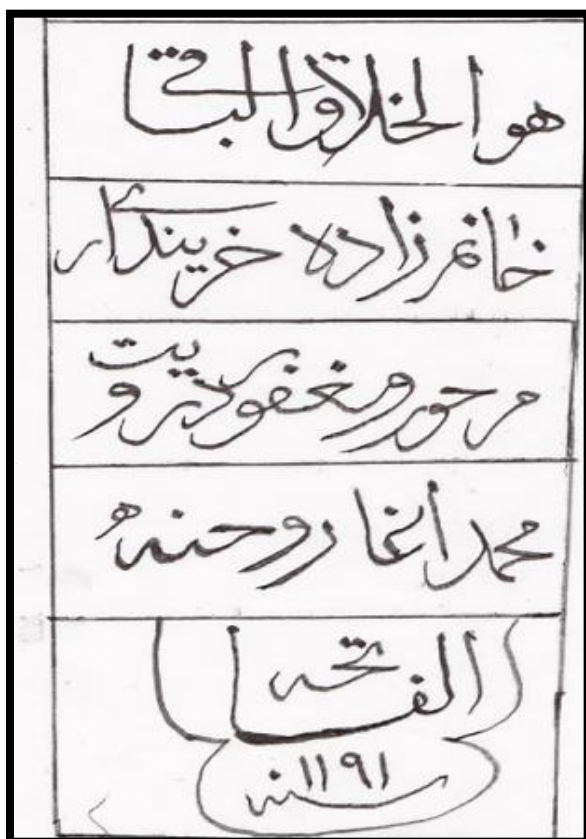 هو الخلاق الباقي
خانم زاده خزينداري
مرحوم ومغفور
محمد اغا روحنه
الفاتحه
سنه ١١٩١